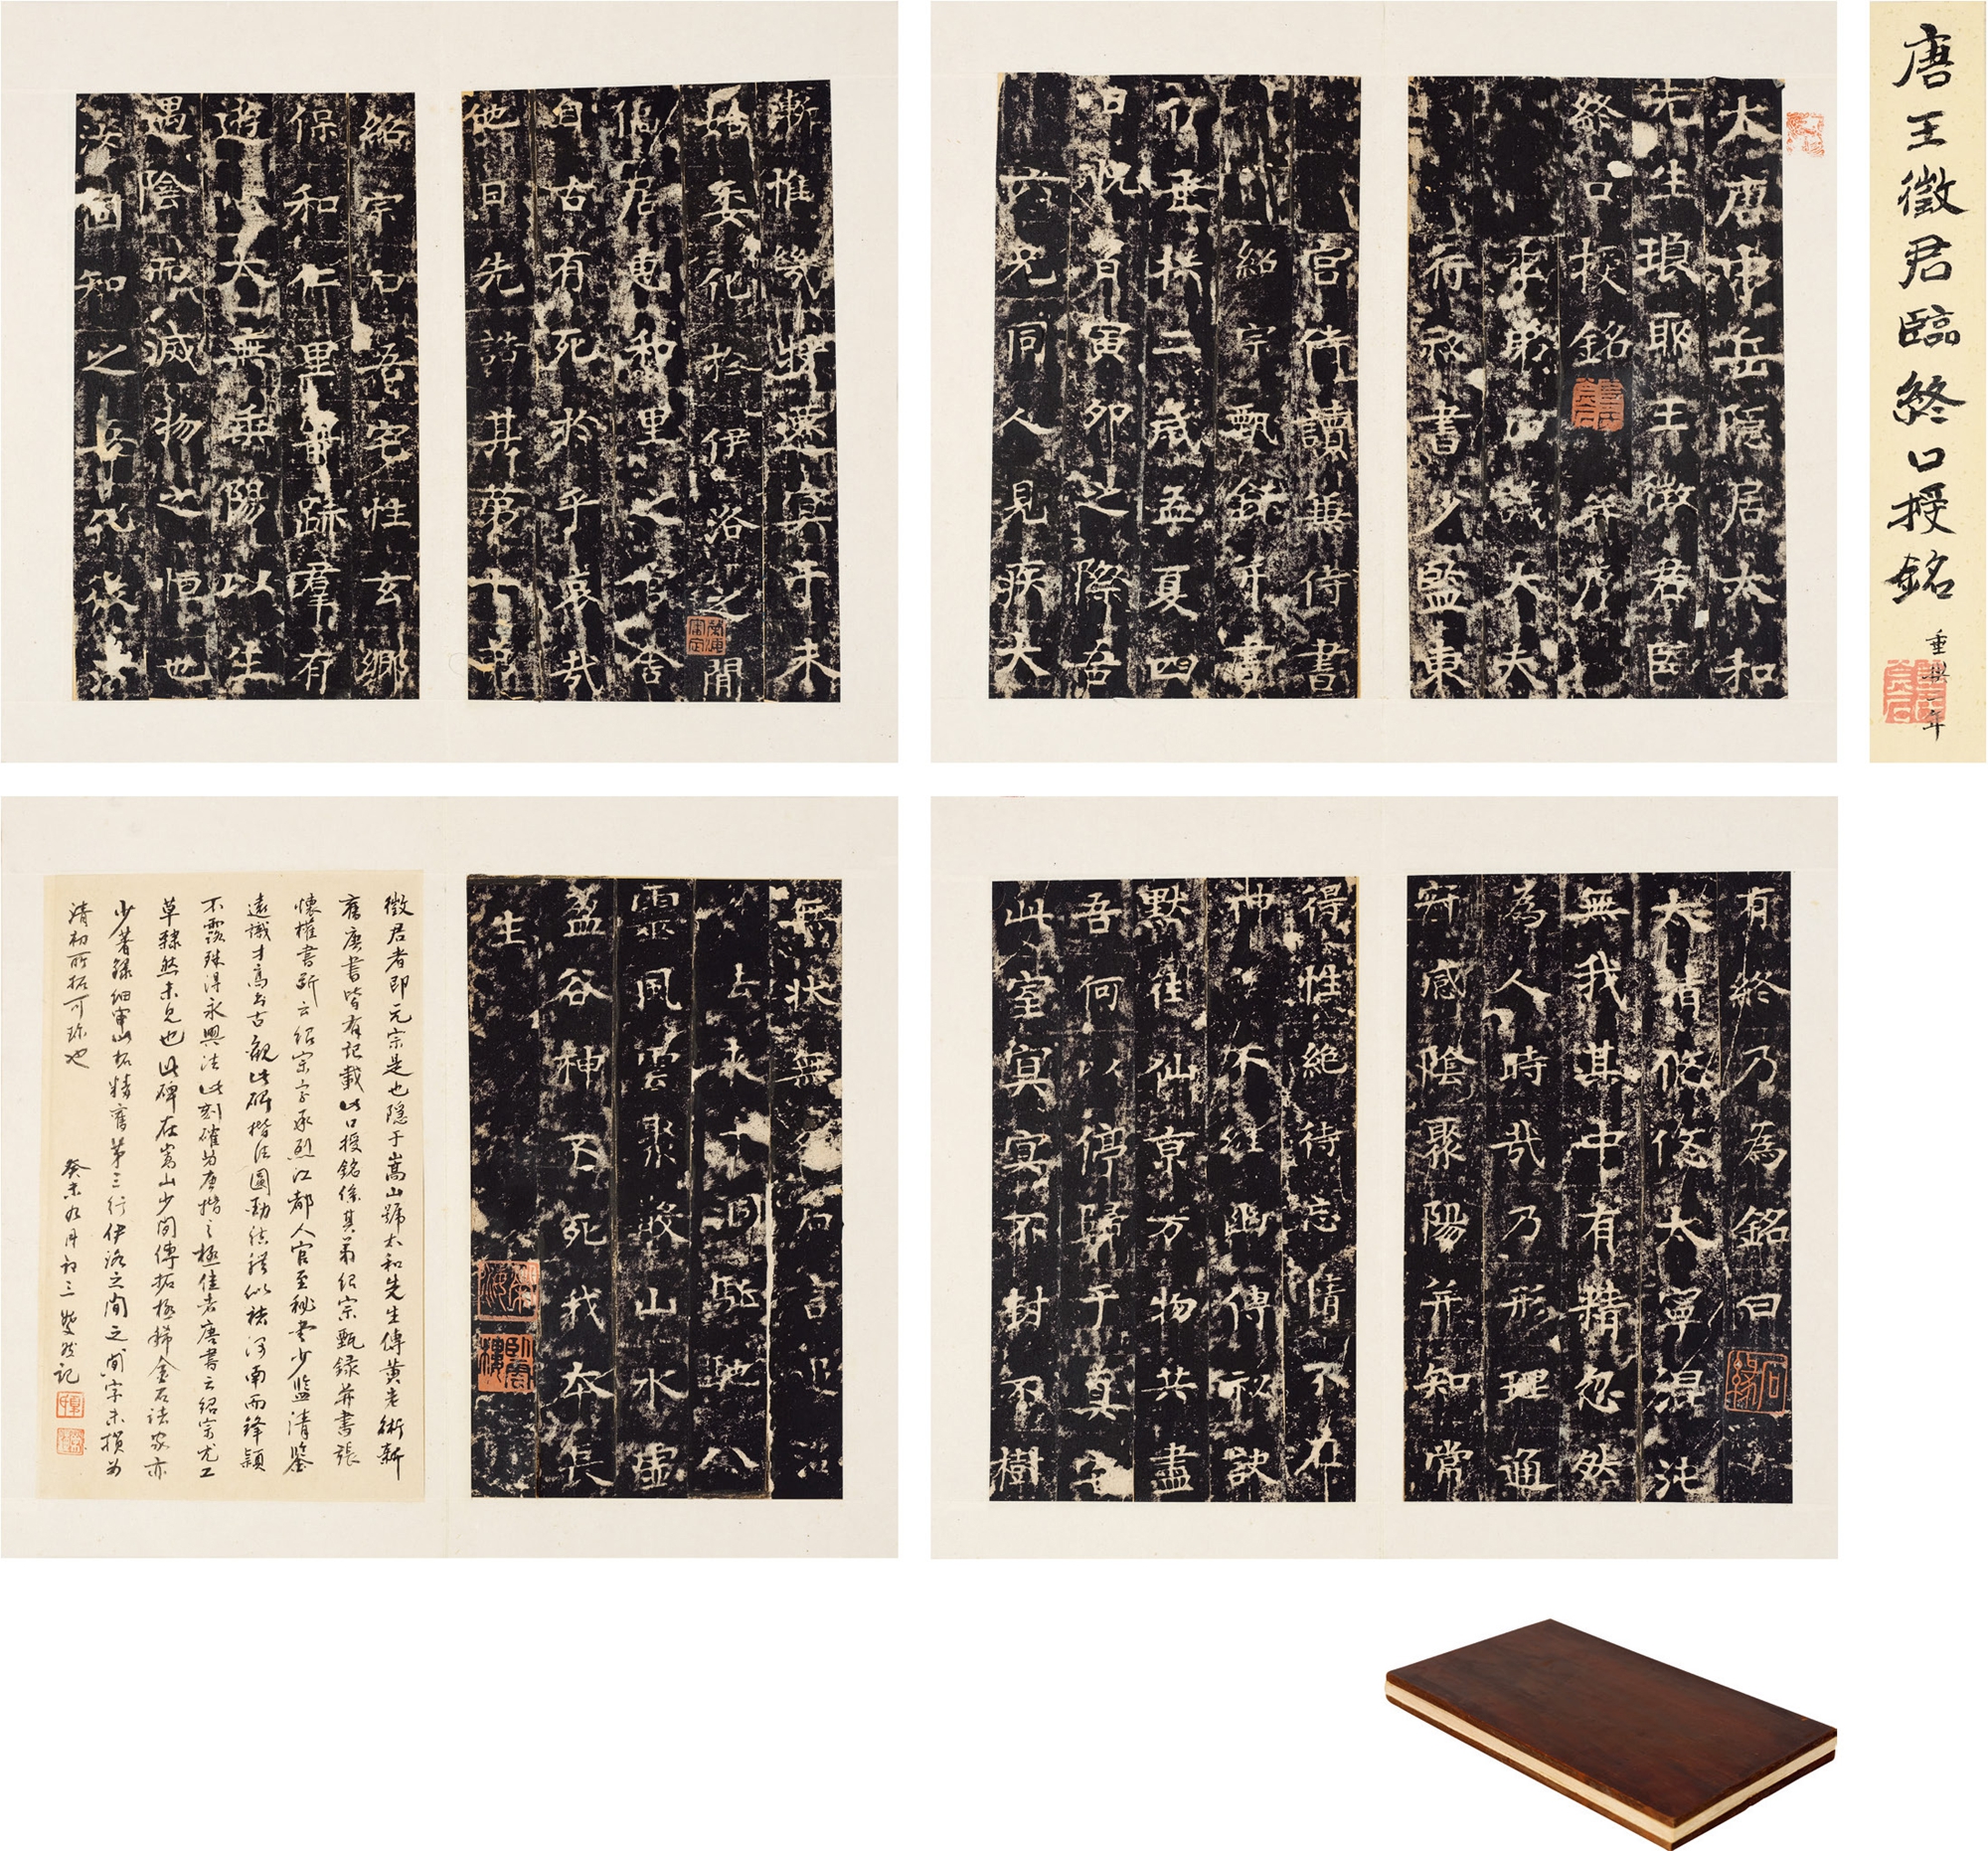 唐王徵君臨終口授銘
重襟 年
大唐中岳隱居太和
先生琅耶王徵君臨
終口授銘 并序
季弟 大夫
行祕書少監東
宮侍讀兼侍書
紹宗甄錄并書
行垂拱二歲孟夏四
日 有寅卯之際吾
六兄同人見疾大
漸惟幾將遷冥于未
始委化於伊洛之間
僑居惠和里之官舍
自古有死於乎哀哉
他日先誥其第十弟
紹宗曰吾宅性玄鄉
保和仁里寄跡羣有
遊心太無乘陽以生
遇陰而滅物之恒也
汝固知之 吾化後
有終乃為銘曰
太清悠悠太寧混沌
無我其中有精忽然
為人時哉乃形理通
寂感陰聚陽并知常
得性絕待忘情不在
神 不繼幽傳祕訣
默往仙京万物共盡
吾何以停歸于真宅
此室冥冥不封不樹
無狀無名石言
去來 洞 馳八
靈風雲聚散山水虛
盈谷神不死我本長
生
徵君者即元宗是也隱于嵩山號太和先生傳黃老術新
舊唐書皆有記載此口授銘係其弟紹宗甄錄并書張
懷權書斷云紹宗字承烈江都人官至秘書少監清鑒
遠識才高書古觀此碑楷法圓勁結體似褚河南而鋒穎
不露殊得永興法此刻確為唐楷之極佳者唐書云紹宗尤工
草隸然未見也此碑在嵩山少間傳拓極稀金石諸家亦
少著錄細審此拓精舊第三行伊洛之間之間字未損為
清初所拓可珍也
癸未九月初三 記